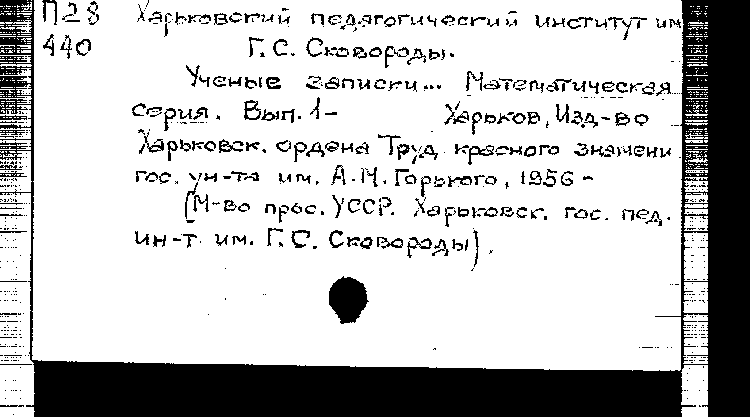 П28 Харьковский педагогический институт им
440 Г.С. Сковороды.
Ученые записки... Математическая
серия. Вып. 1- Харьков, Изд-во
Харьковск. ордена Труд. красного знамени
гос. ун-та им. А.М. Горького, 1956 -
(М-во прос. УССР. Харьковск. гос. пед.
ин-т им. Г.С. Сковороды).